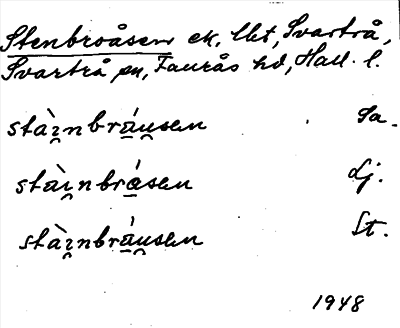 Stenbroåsen ek. lht, Svartrå,
Svartrå sn, Faurås hd, Hall. l.
stàı̯nbrá̱u̯sen Sa.
stàı̯nbrá̱sen Lj.
stàı̯nbrá̱u̯sen St.
1948